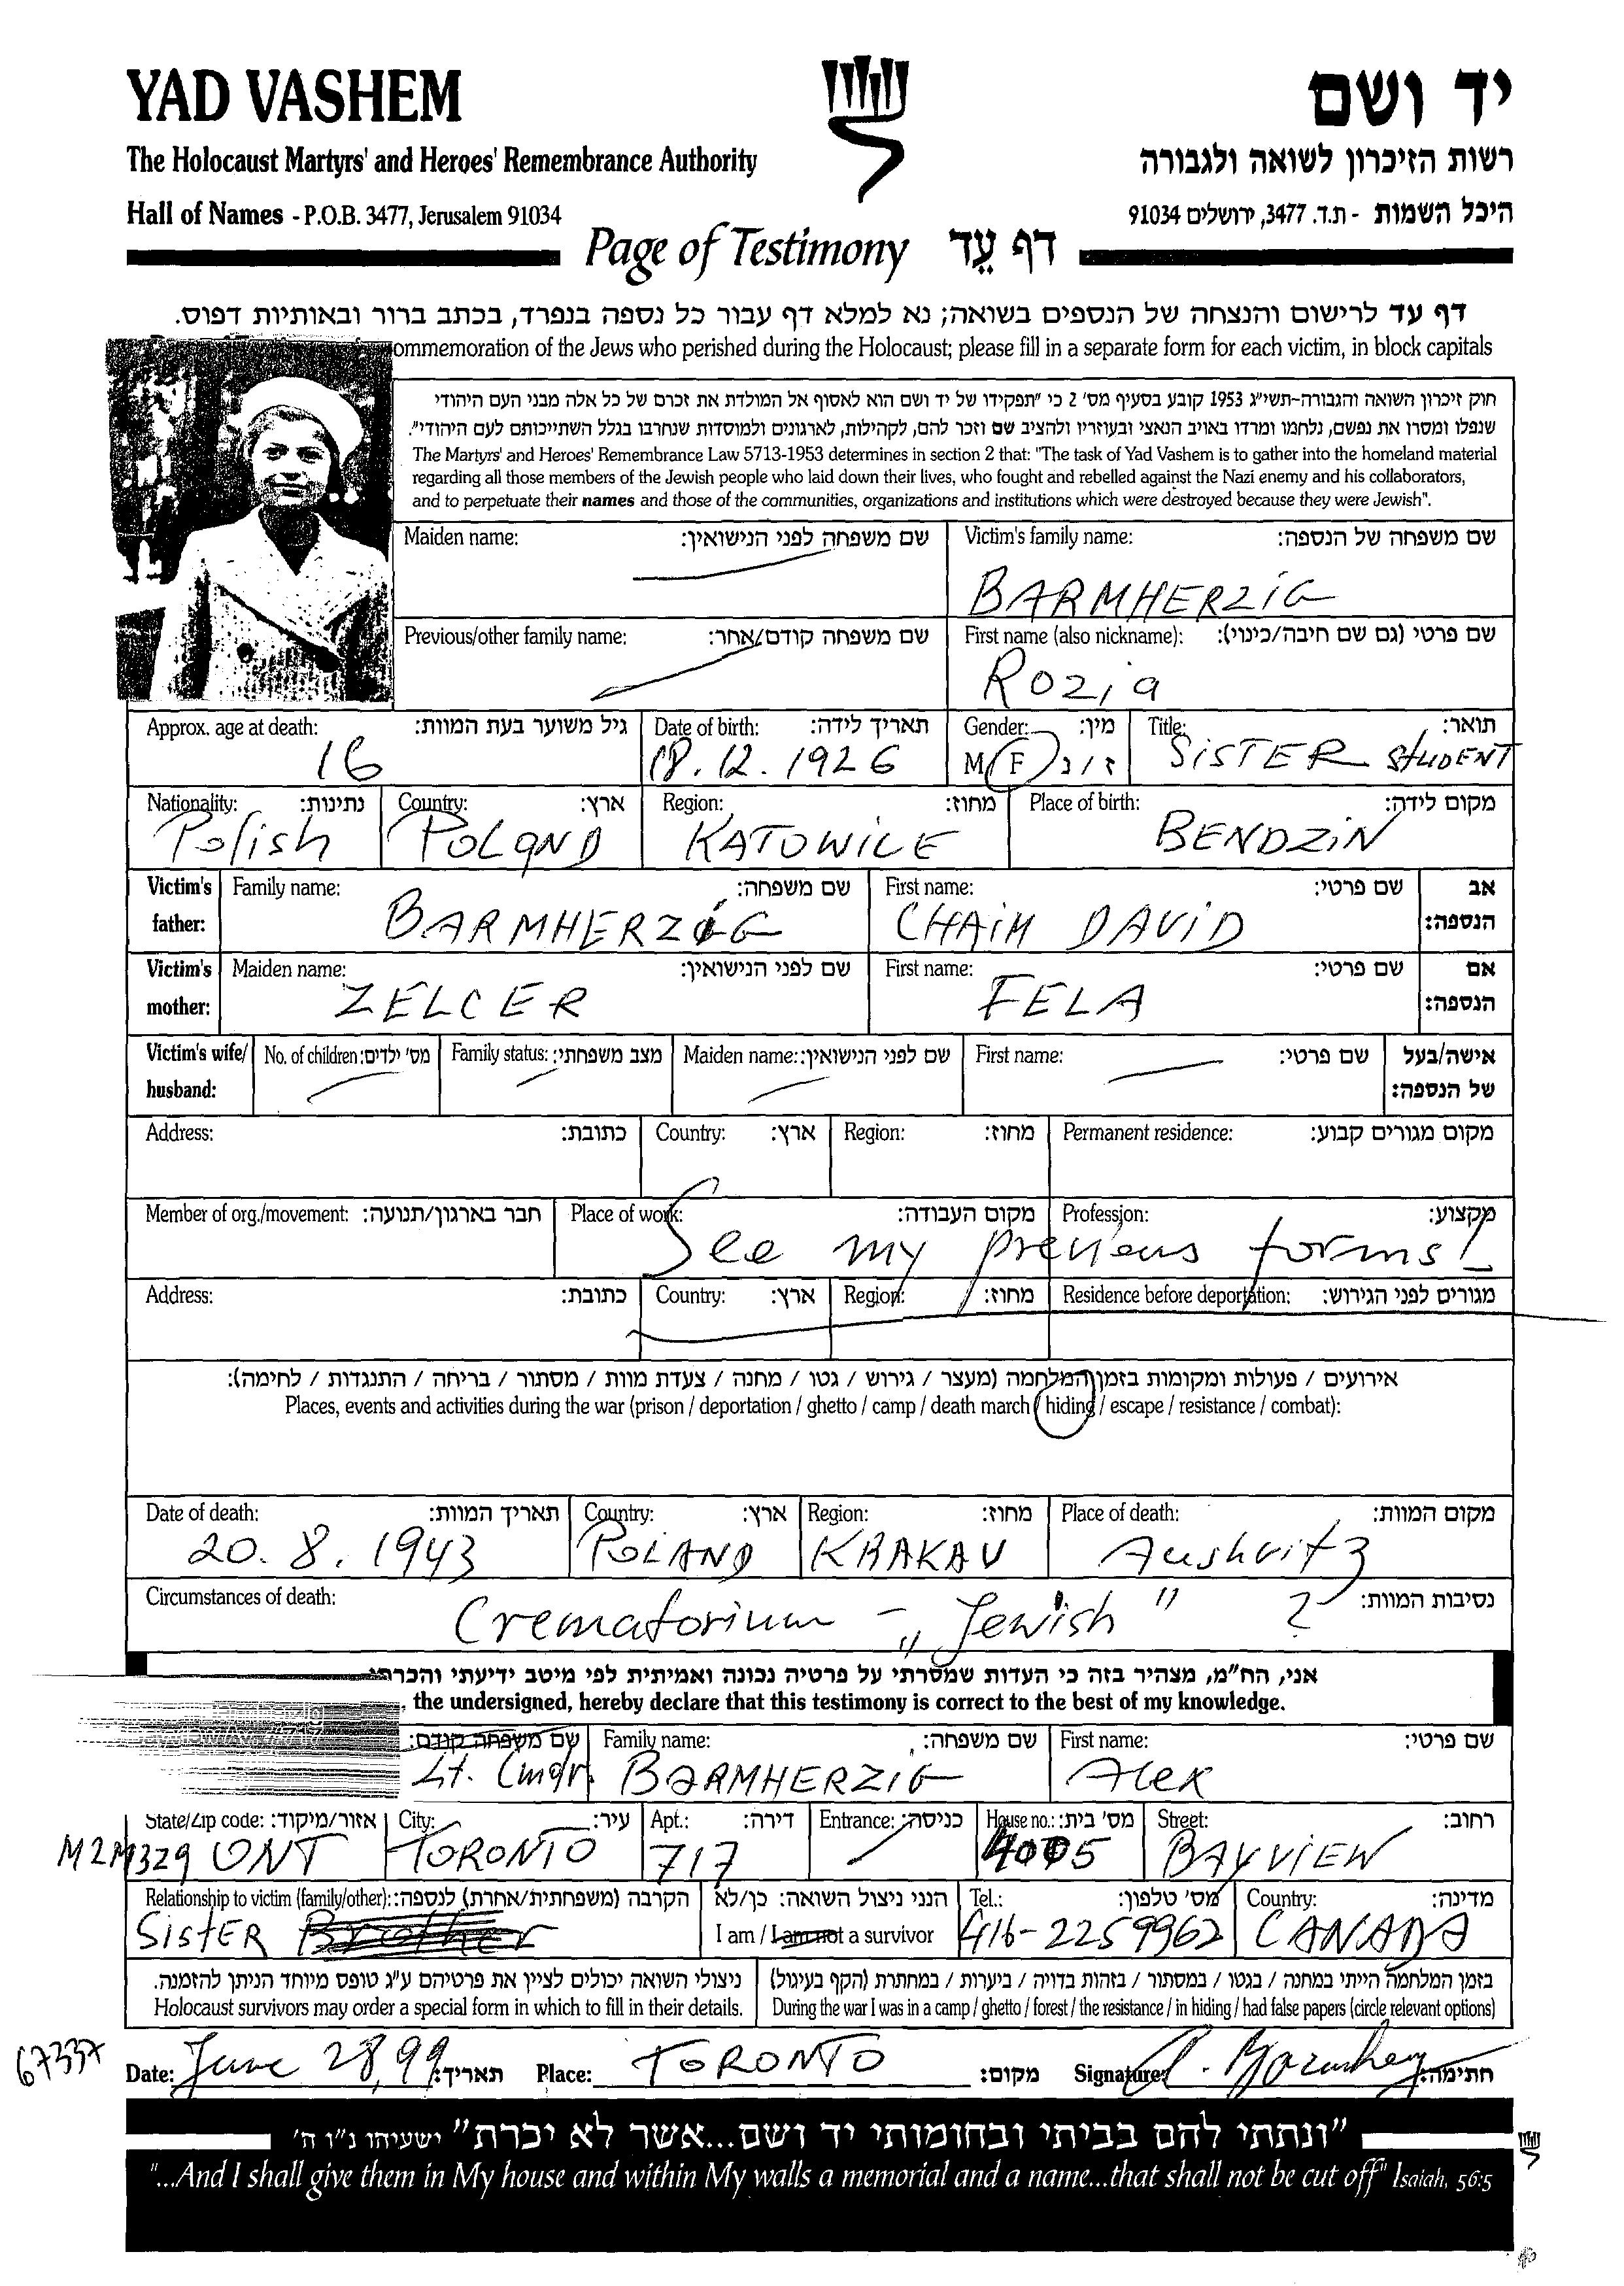 YAD VASHEM
יד ושם
The Holocaust Martyrs' and Heroes' Remembrance Authority
רשות הזיכרון לשואה ולגבורה
Hall of Names - P.O.B. 3477, Jerusalem 91034
היכל השמות - ת.ד. 3477, ירושלים 91034
Page of Testimony דף עֵד
דף עד לרישום והנצחה של הנספים בשואה; נא למלא דף עבור כל נספה בנפרד, בכתב ברור ובאותיות דפוס.
ommemoration of the Jews who perished during the Holocaust; please fill in a separate form for each victim, in block capitals
חוק זיכרון השואה והגבורה-תשי״ג 1953 קובע בסעיף מס' 2 כי ״תפקידו של יד ושם הוא לאסוף אל המולדת את זכרם של כל אלה מבני העם היהודי
שנפלו ומסרו את נפשם, נלחמו ומרדו באויב הנאצי ובעוזריו ולהציב שם וזכר להם, לקהילות, לארגונים ולמוסדות שנחרבו בגלל השתייכותם לעם היהודי״.
The Martyrs' and Heroes' Remembrance Law 5713-1953 determines in section 2 that: "The task of Yad Vashem is to gather into the homeland material
regarding all those members of the Jewish people who laid down their lives, who fought and rebelled against the Nazi enemy and his collaborators,
and to perpetuate their names and those of the communities, organizations and institutions which were destroyed because they were Jewish".
Maiden name: שם משפחה לפני הנישואין: Victim's family name: שם משפחה של הנספה:
BARMHERZIG
Previous/other family name: שם משפחה קודם/אחר: First name (also nickname): שם פרטי (גם שם חיבה/כינוי):
Rozia
Approx. age at death: גיל משוער בעת המוות: Date of birth: תאריך לידה: Gender: מין: Title: תואר:
16 18.12.1926 M F ז / נ SISTER STUDENT
Nationality: נתינות: Country: ארץ: Region: מחוז: Place of birth: מקום לידה:
Polish POLAND KATOWICE BENDZIN
Victim's father: Family name: שם משפחה: First name: שם פרטי: אב הנספה:
BARMHERZIG CHAIM DAVID
Victim's mother: Maiden name: שם לפני הנישואין: First name: שם פרטי: אם הנספה:
ZELCER FELA
Victim's wife/ husband: No. of children: מס' ילדים: Family status: מצב משפחתי: Maiden name: שם לפני הנישואין: First name: שם פרטי: אישה/בעל של הנספה:
Address: כתובת: Country: ארץ: Region: מחוז: Permanent residence: מקום מגורים קבוע:
Member of org./movement: חבר בארגון/תנועה: Place of work: מקום העבודה: Profession: מקצוע:
See my previous forms!
Address: כתובת: Country: ארץ: Region: מחוז: Residence before deportation: מגורים לפני הגירוש:
אירועים / פעולות ומקומות בזמן המלחמה (מעצר / גירוש / גטו / מחנה / צעדת מוות / מסתור / בריחה / התנגדות / לחימה):
Places, events and activities during the war (prison / deportation / ghetto / camp / death march / hiding / escape / resistance / combat):
Date of death: תאריך המוות: Country: ארץ: Region: מחוז: Place of death: מקום המוות:
20.8.1943 POLAND KRAKAU Aushvitz
Circumstances of death: נסיבות המוות:
Crematorium - „Jewish" ?
אני, הח״מ, מצהיר בזה כי העדות שמסרתי על פרטיה נכונה ואמיתית לפי מיטב ידיעתי והכרתי.
, the undersigned, hereby declare that this testimony is correct to the best of my knowledge.
שם משפחה קודם: Family name: שם משפחה: First name: שם פרטי:
Lt. Cmdr. BARMHERZIG Alex
State/Zip code: אזור/מיקוד: City: עיר: Apt.: דירה: Entrance: כניסה: House no.: מס' בית: Street: רחוב:
M2M3Z9 ONT TORONTO 717 4005 BAYVIEW
Relationship to victim (family/other): הקרבה (משפחתית/אחרת) לנספה: הנני ניצול השואה: כן/לא Tel.: מס' טלפון: Country: מדינה:
SISTER Brother I am / I am not a survivor 416-2259962 CANADA
ניצולי השואה יכולים לציין את פרטיהם ע״ג טופס מיוחד הניתן להזמנה. בזמן המלחמה הייתי במחנה / בגטו / במסתור / בזהות בדויה / ביערות / במחתרת (הקף בעיגול)
Holocaust survivors may order a special form in which to fill in their details. During the war I was in a camp / ghetto / forest / the resistance / in hiding / had false papers (circle relevant options)
67337
Date: June 28, 99 תאריך: Place: TORONTO מקום: Signature: חתימה:
״ונתתי להם בביתי ובחומותי יד ושם...אשר לא יכרת״ ישעיהו נ״ו ה'
"...And I shall give them in My house and within My walls a memorial and a name...that shall not be cut off" Isaiah, 56:5